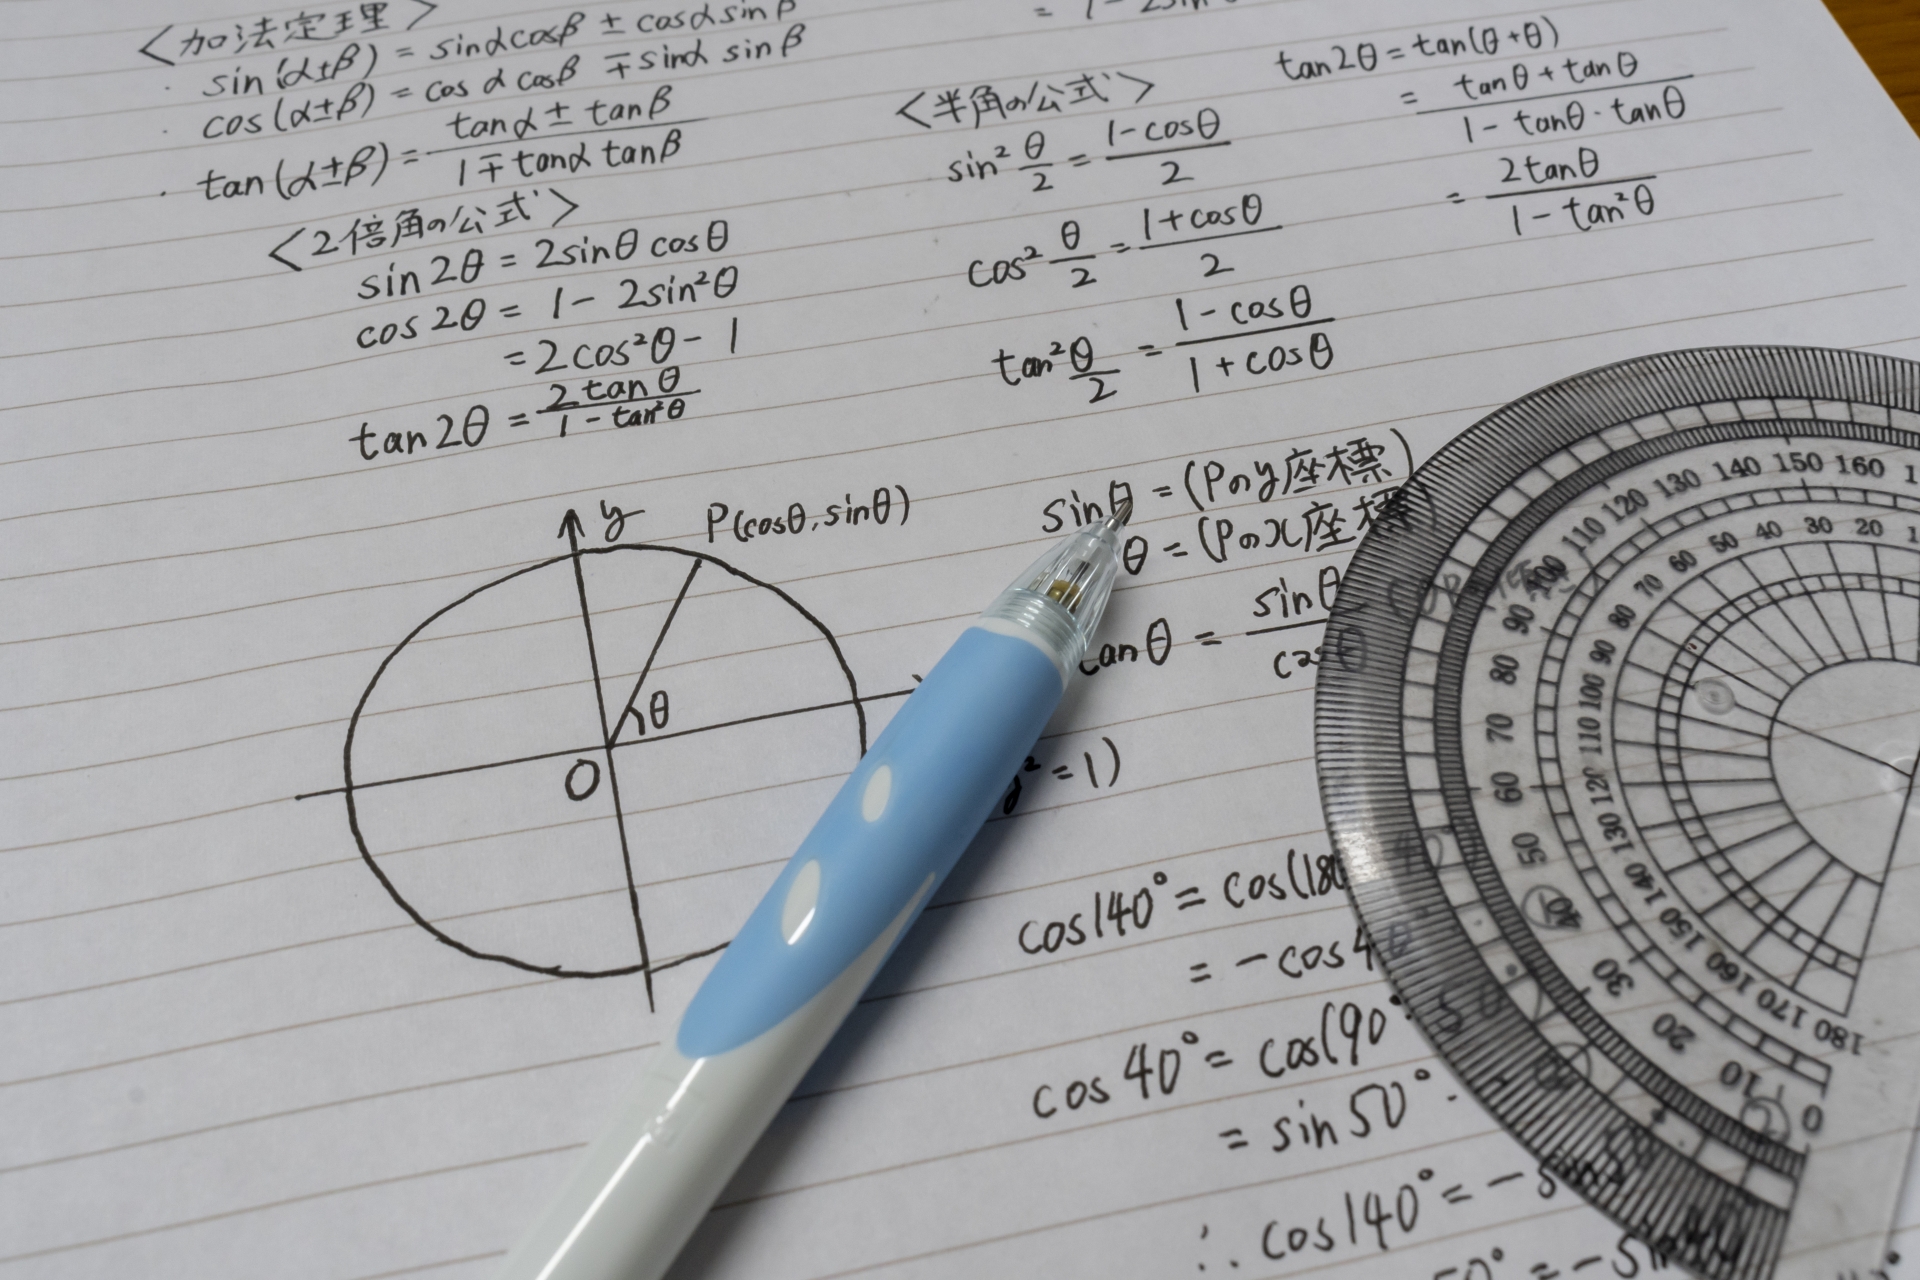 <加法定理>
・sin(α±β) = sinαcosβ ± cosαsinβ
・cos(α±β) = cosαcosβ ∓ sinα sinβ
・tan(α±β) = (tanα ± tanβ)/(1 ∓ tanα tanβ)
<2倍角の公式>
sin2θ = 2sinθ cosθ
cos2θ = 1 - 2sin²θ
= 2cos²θ - 1
tan2θ = 2tanθ/(1 - tan²θ)
<半角の公式>
sin² θ/2 = (1-cosθ)/2
cos² θ/2 = (1+cosθ)/2
tan² θ/2 = (1-cosθ)/(1+cosθ)
tan2θ = tan(θ+θ)
= (tanθ + tanθ)/(1 - tanθ・tanθ)
= 2tanθ/(1 - tan²θ)
y
P(cosθ, sinθ)
θ
O
sinθ = (Pのy座標)
θ = (Pのx座標)
tanθ = sinθ/cosθ
y² = 1)
cos140° = cos(180
= -cos40
cos40° = cos(90°
= sin50°
∴ cos140° = -sin
50° = -sin
130 140 150 160
120
110
100
90
80
70
60
50
40
30
20
10
0
20
30
40
50
60
70
80
90
100
110
120
130
140
150
160
170
180